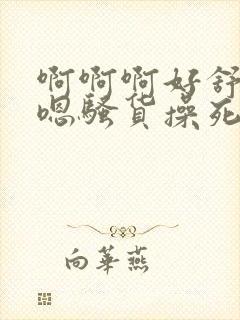 啊啊啊好舒
嗯骚货操死
向華燕